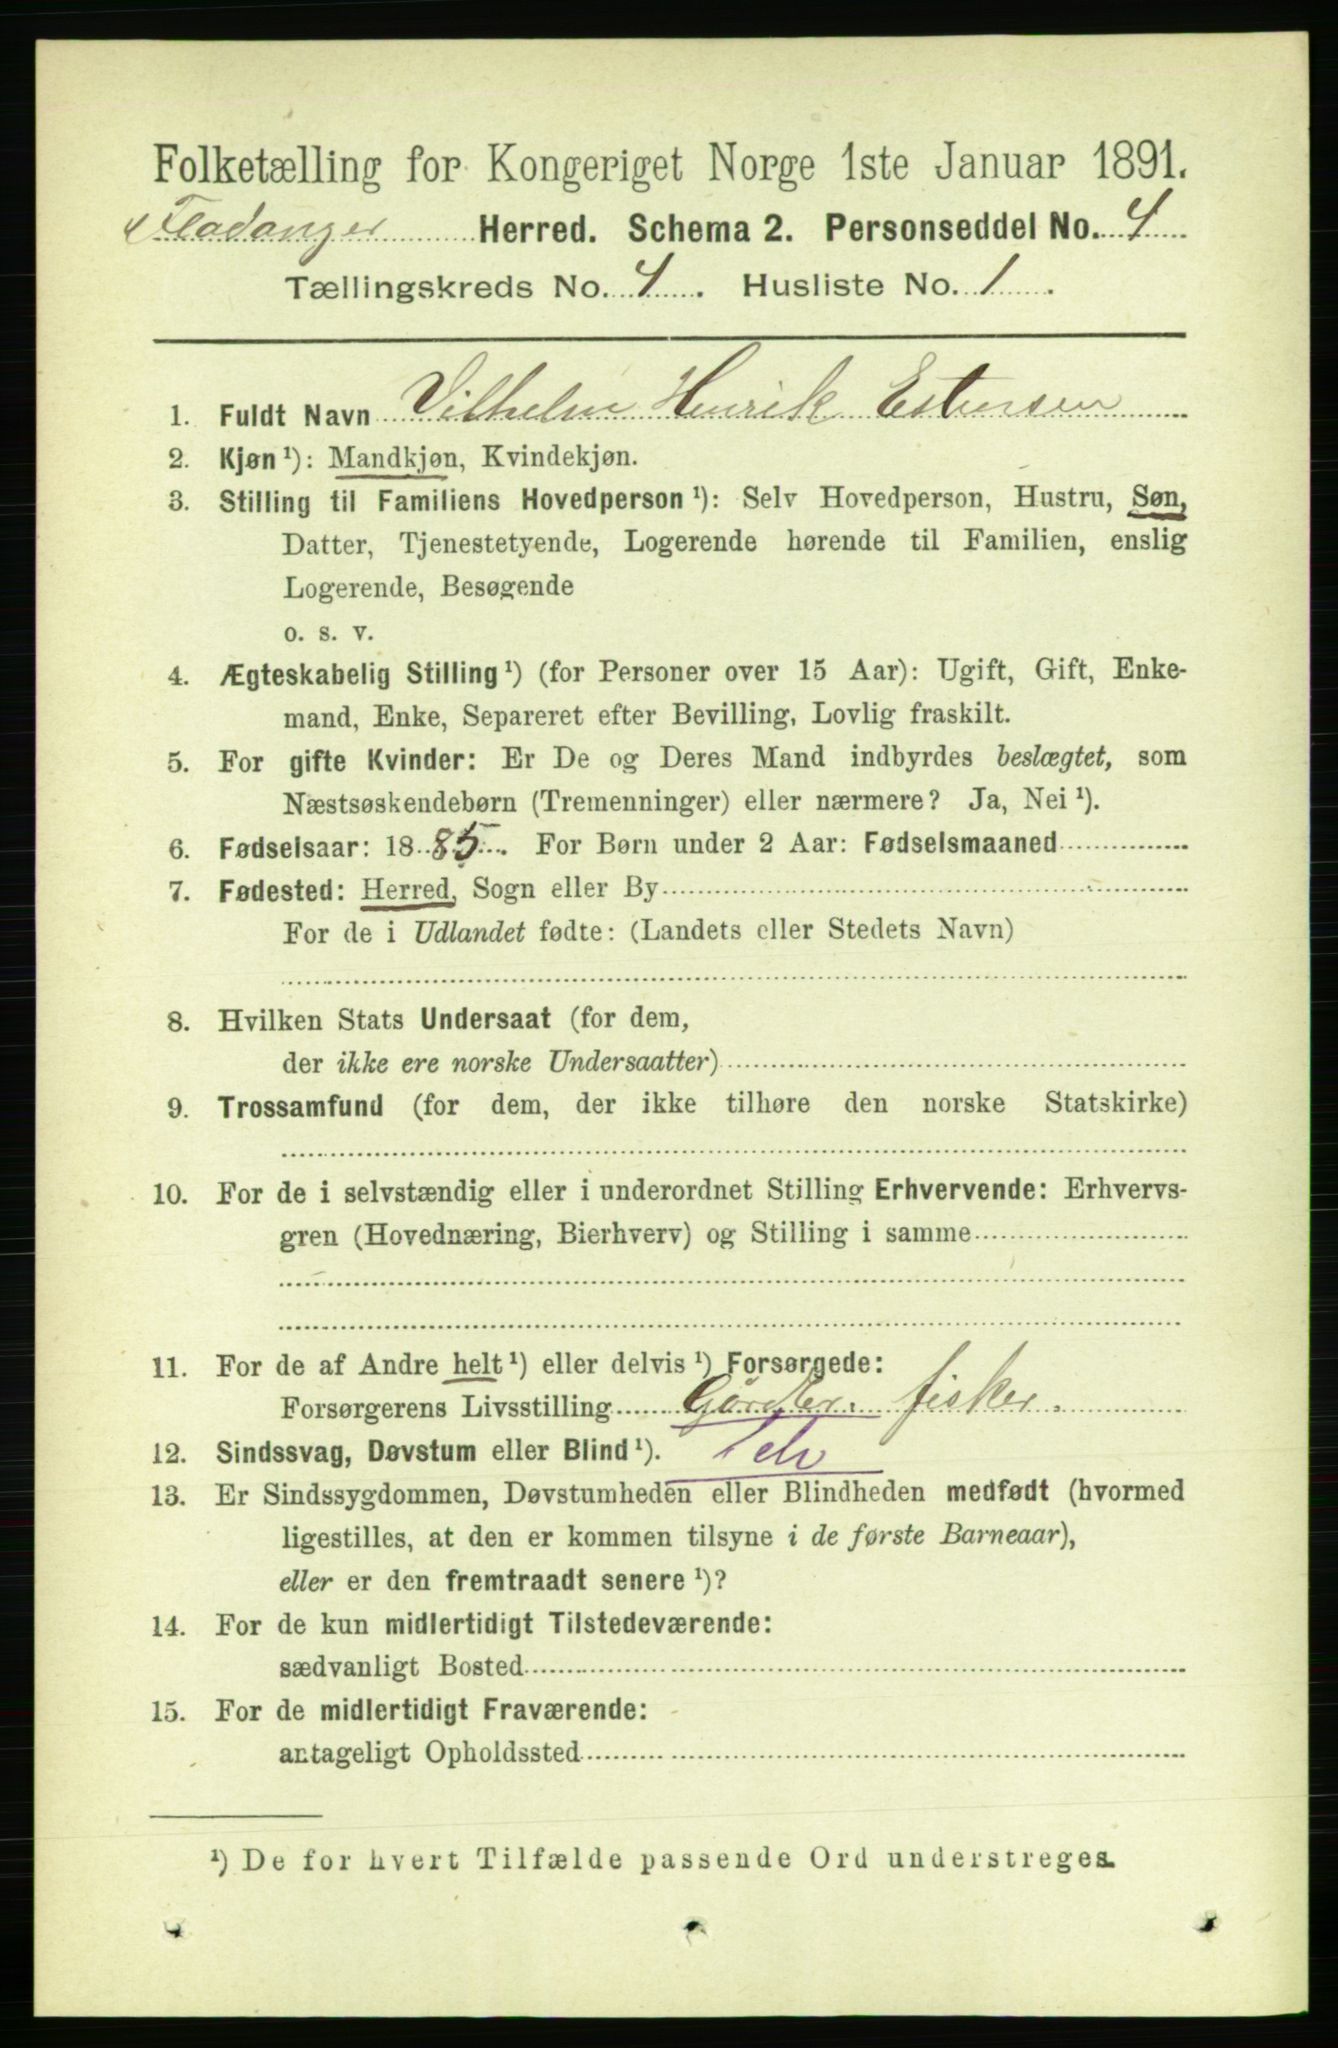 Folketælling for Kongeriget Norge 1ste Januar 1891.
Fladanger Herred. Schema 2. Personseddel No. 4
Tællingskreds No. 4. Husliste No. 1.
1. Fuldt Navn Vilhelm Henrik Estensen
2. Kjøn¹): Mandkjøn, Kvindekjøn.
3. Stilling til Familiens Hovedperson¹): Selv Hovedperson, Hustru, Søn,
Datter, Tjenestetyende, Logerende hørende til Familien, enslig
Logerende, Besøgende
o. s. v.
4. Ægteskabelig Stilling¹) (for Personer over 15 Aar): Ugift, Gift, Enke-
mand, Enke, Separeret efter Bevilling, Lovlig fraskilt.
5. For gifte Kvinder: Er De og Deres Mand indbyrdes beslægtet, som
Næstsøskendebørn (Tremenninger) eller nærmere? Ja, Nei¹).
6. Fødselsaar: 1885. For Børn under 2 Aar: Fødselsmaaned
7. Fødested: Herred, Sogn eller By
For de i Udlandet fødte: (Landets eller Stedets Navn)
8. Hvilken Stats Undersaat (for dem,
der ikke ere norske Undersaatter)
9. Trossamfund (for dem, der ikke tilhøre den norske Statskirke)
10. For de i selvstændig eller i underordnet Stilling Erhvervende: Erhvervs-
gren (Hovednæring, Bierhverv) og Stilling i samme
11. For de af Andre helt¹) eller delvis¹) Forsørgede:
Forsørgerens Livsstilling fisker.
12. Sindssvag, Døvstum eller Blind¹).
13. Er Sindssygdommen, Døvstumheden eller Blindheden medfødt (hvormed
ligestilles, at den er kommen tilsyne i de første Barneaar),
eller er den fremtraadt senere¹)?
14. For de kun midlertidigt Tilstedeværende:
sædvanligt Bosted
15. For de midlertidigt Fraværende:
antageligt Opholdssted
¹) De for hvert Tilfælde passende Ord understreges.